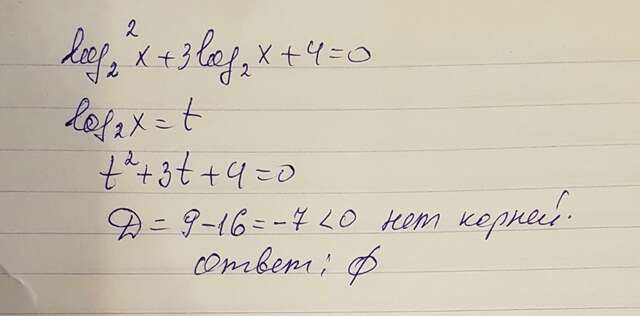 log₂²x+3log₂x+4=0
log₂x=t
t²+3t+4=0
D=9-16=-7<0 нет корней.
Ответ: ϕ